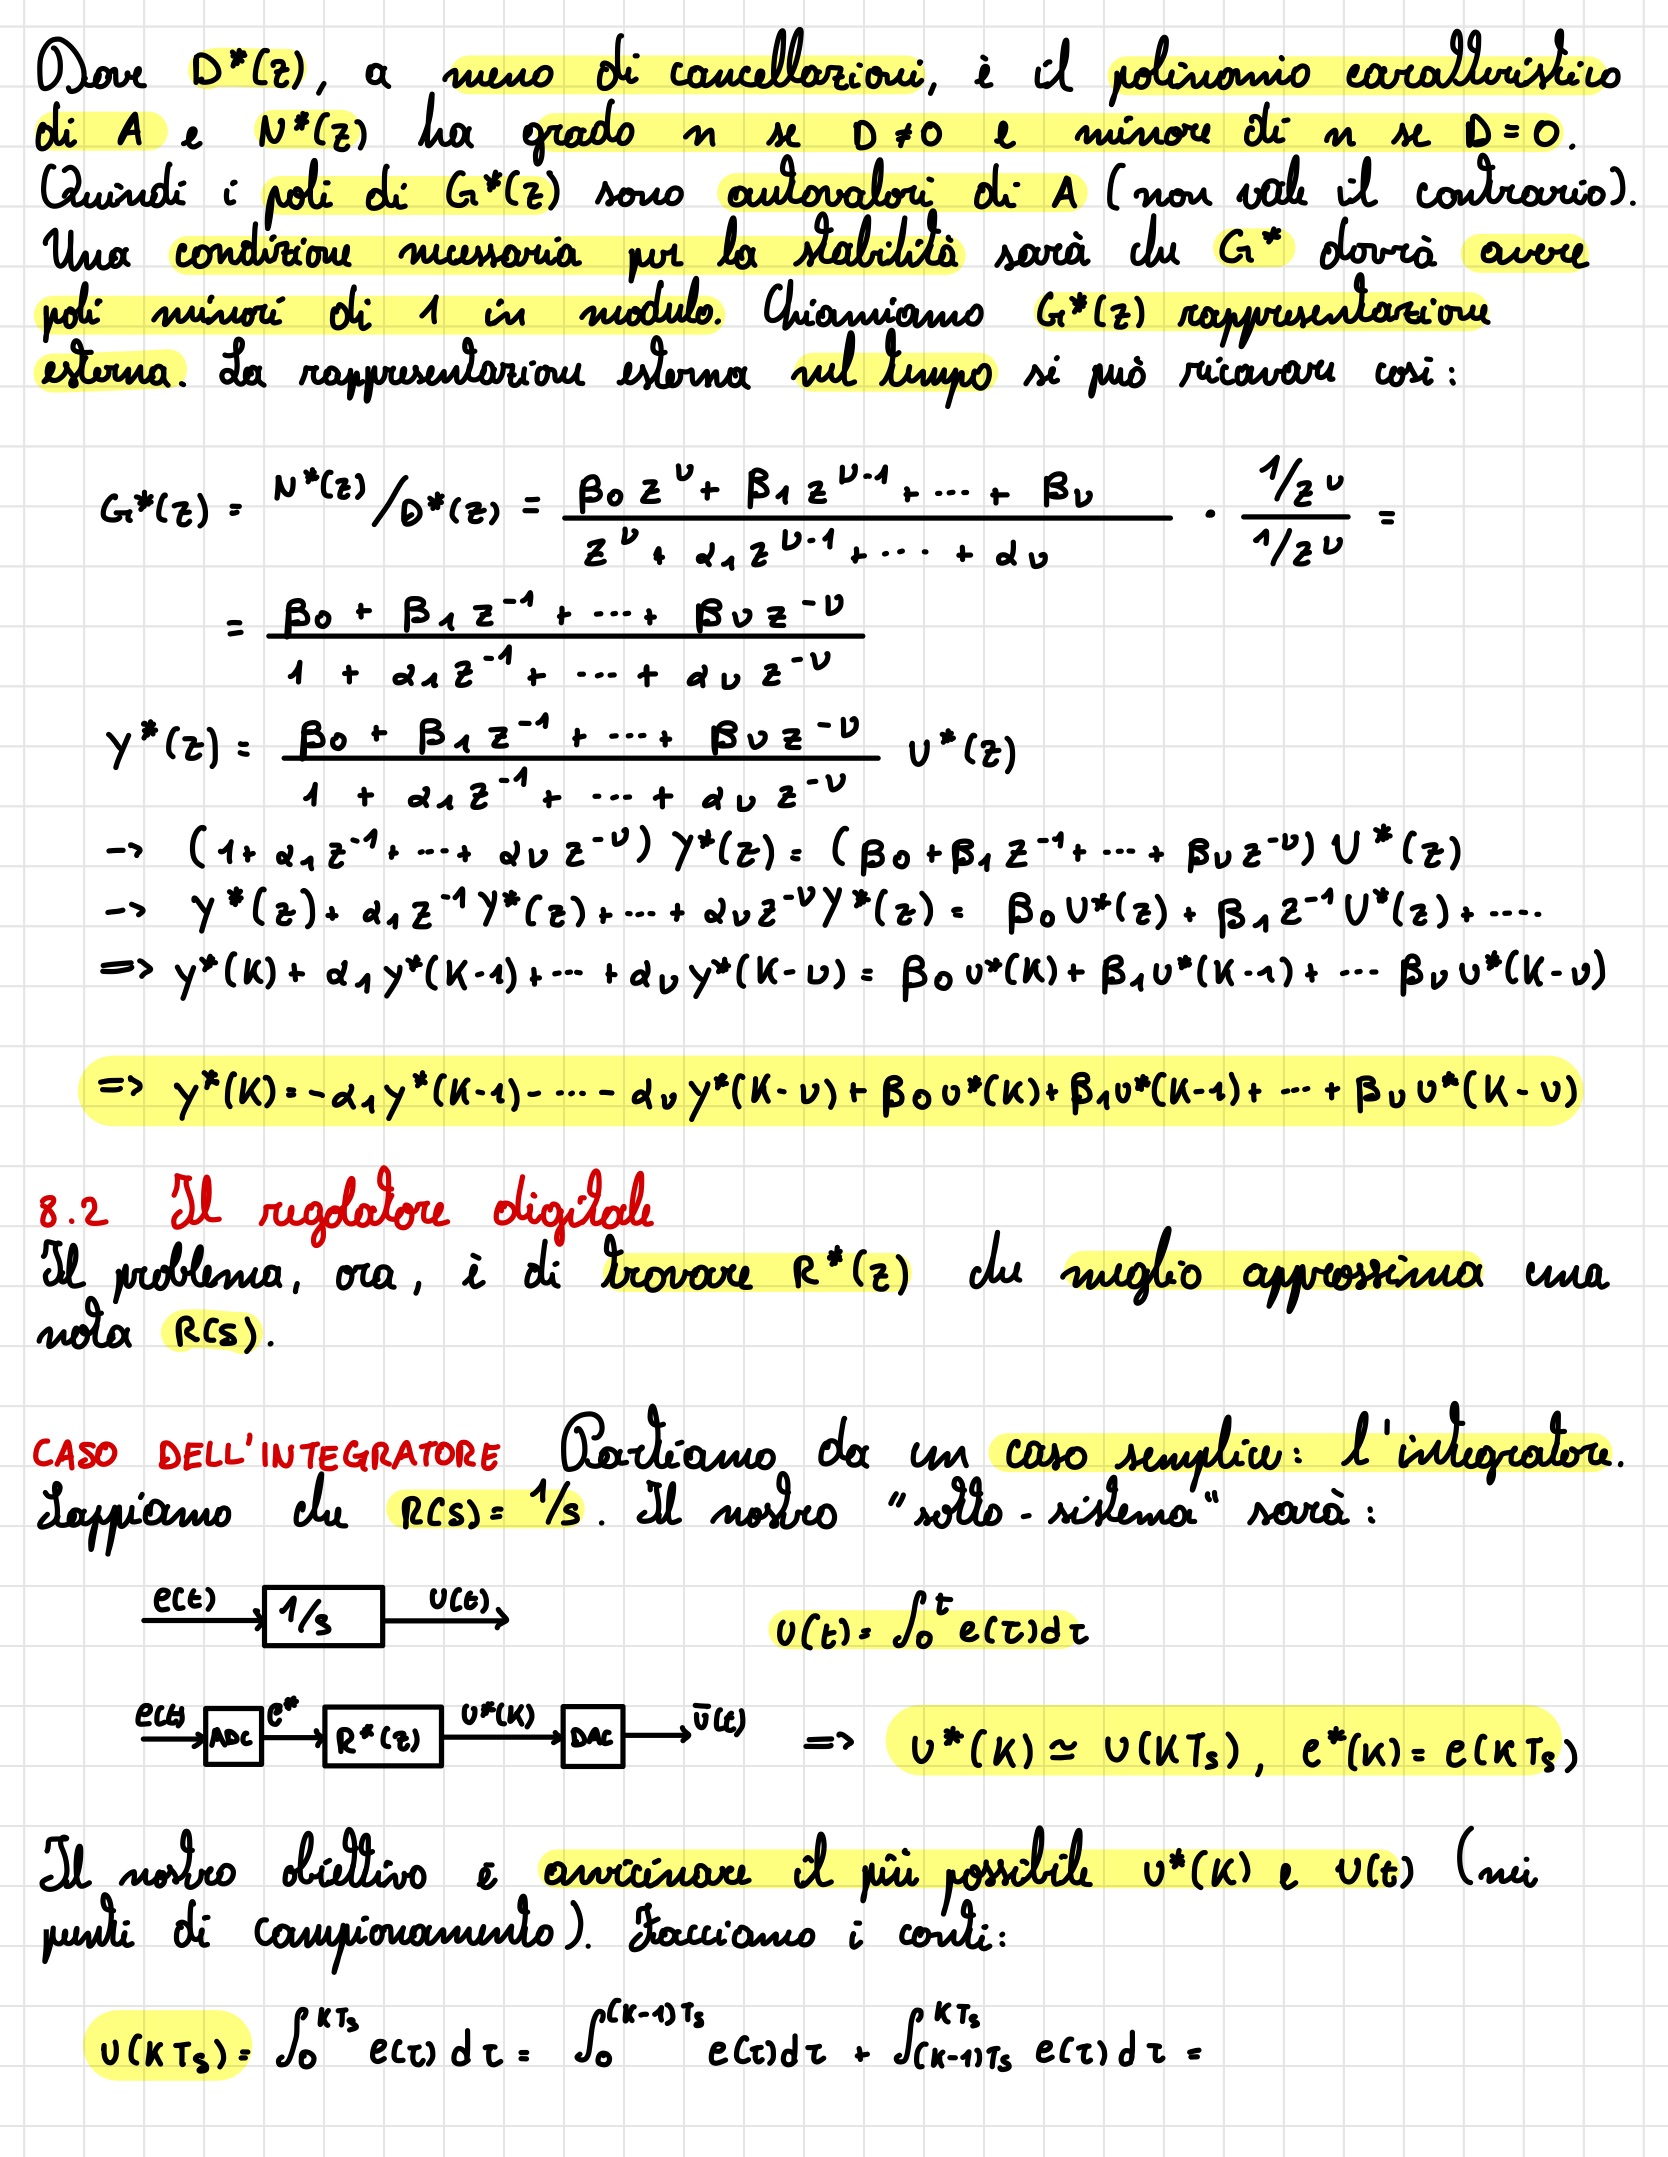 Dove D*(z), a meno di cancellazioni, è il polinomio caratteristico
di A e N*(z) ha grado n se D ≠ 0 e minore di n se D = 0.
Quindi i poli di G*(z) sono autovalori di A (non vale il contrario).
Una condizione necessaria per la stabilità sarà che G* dovrà avere
poli minori di 1 in modulo. Chiamiamo G*(z) rappresentazione
esterna. La rappresentazione esterna nel tempo si può ricavare così:
G*(z) = N*(z)/D*(z) = (β0 z^ν + β1 z^(ν-1) + ... + βν) / (z^ν + α1 z^(ν-1) + ... + αν) · (1/z^ν) / (1/z^ν) =
= (β0 + β1 z^-1 + ... + βν z^-ν) / (1 + α1 z^-1 + ... + αν z^-ν)
Y*(z) = (β0 + β1 z^-1 + ... + βν z^-ν) / (1 + α1 z^-1 + ... + αν z^-ν) U*(z)
-> (1 + α1 z^-1 + ... + αν z^-ν) Y*(z) = (β0 + β1 z^-1 + ... + βν z^-ν) U*(z)
-> Y*(z) + α1 z^-1 Y*(z) + ... + αν z^-ν Y*(z) = β0 U*(z) + β1 z^-1 U*(z) + ....
=> y*(K) + α1 y*(K-1) + ... + αν y*(K-ν) = β0 u*(K) + β1 u*(K-1) + ... βν u*(K-ν)
=> y*(K) = -α1 y*(K-1) - ... - αν y*(K-ν) + β0 u*(K) + β1 u*(K-1) + ... + βν u*(K-ν)
8.2 Il regolatore digitale
Il problema, ora, è di trovare R*(z) che meglio approssima una
nota R(s).
CASO DELL'INTEGRATORE Partiamo da un caso semplice: l'integratore.
Sappiamo che R(s) = 1/s. Il nostro "sotto-sistema" sarà:
e(t) 1/s u(t) u(t) = ∫0^t e(τ)dτ
e(t) ADC e* R*(z) u*(K) DAC ū(t) => u*(K) ≃ u(KTs), e*(K) = e(KTs)
Il nostro obiettivo è avvicinare il più possibile u*(K) e u(t) (nei
punti di campionamento). Facciamo i conti:
u(KTs) = ∫0^KTs e(τ) dτ = ∫0^(K-1)Ts e(τ)dτ + ∫(K-1)Ts^KTs e(τ) dτ =